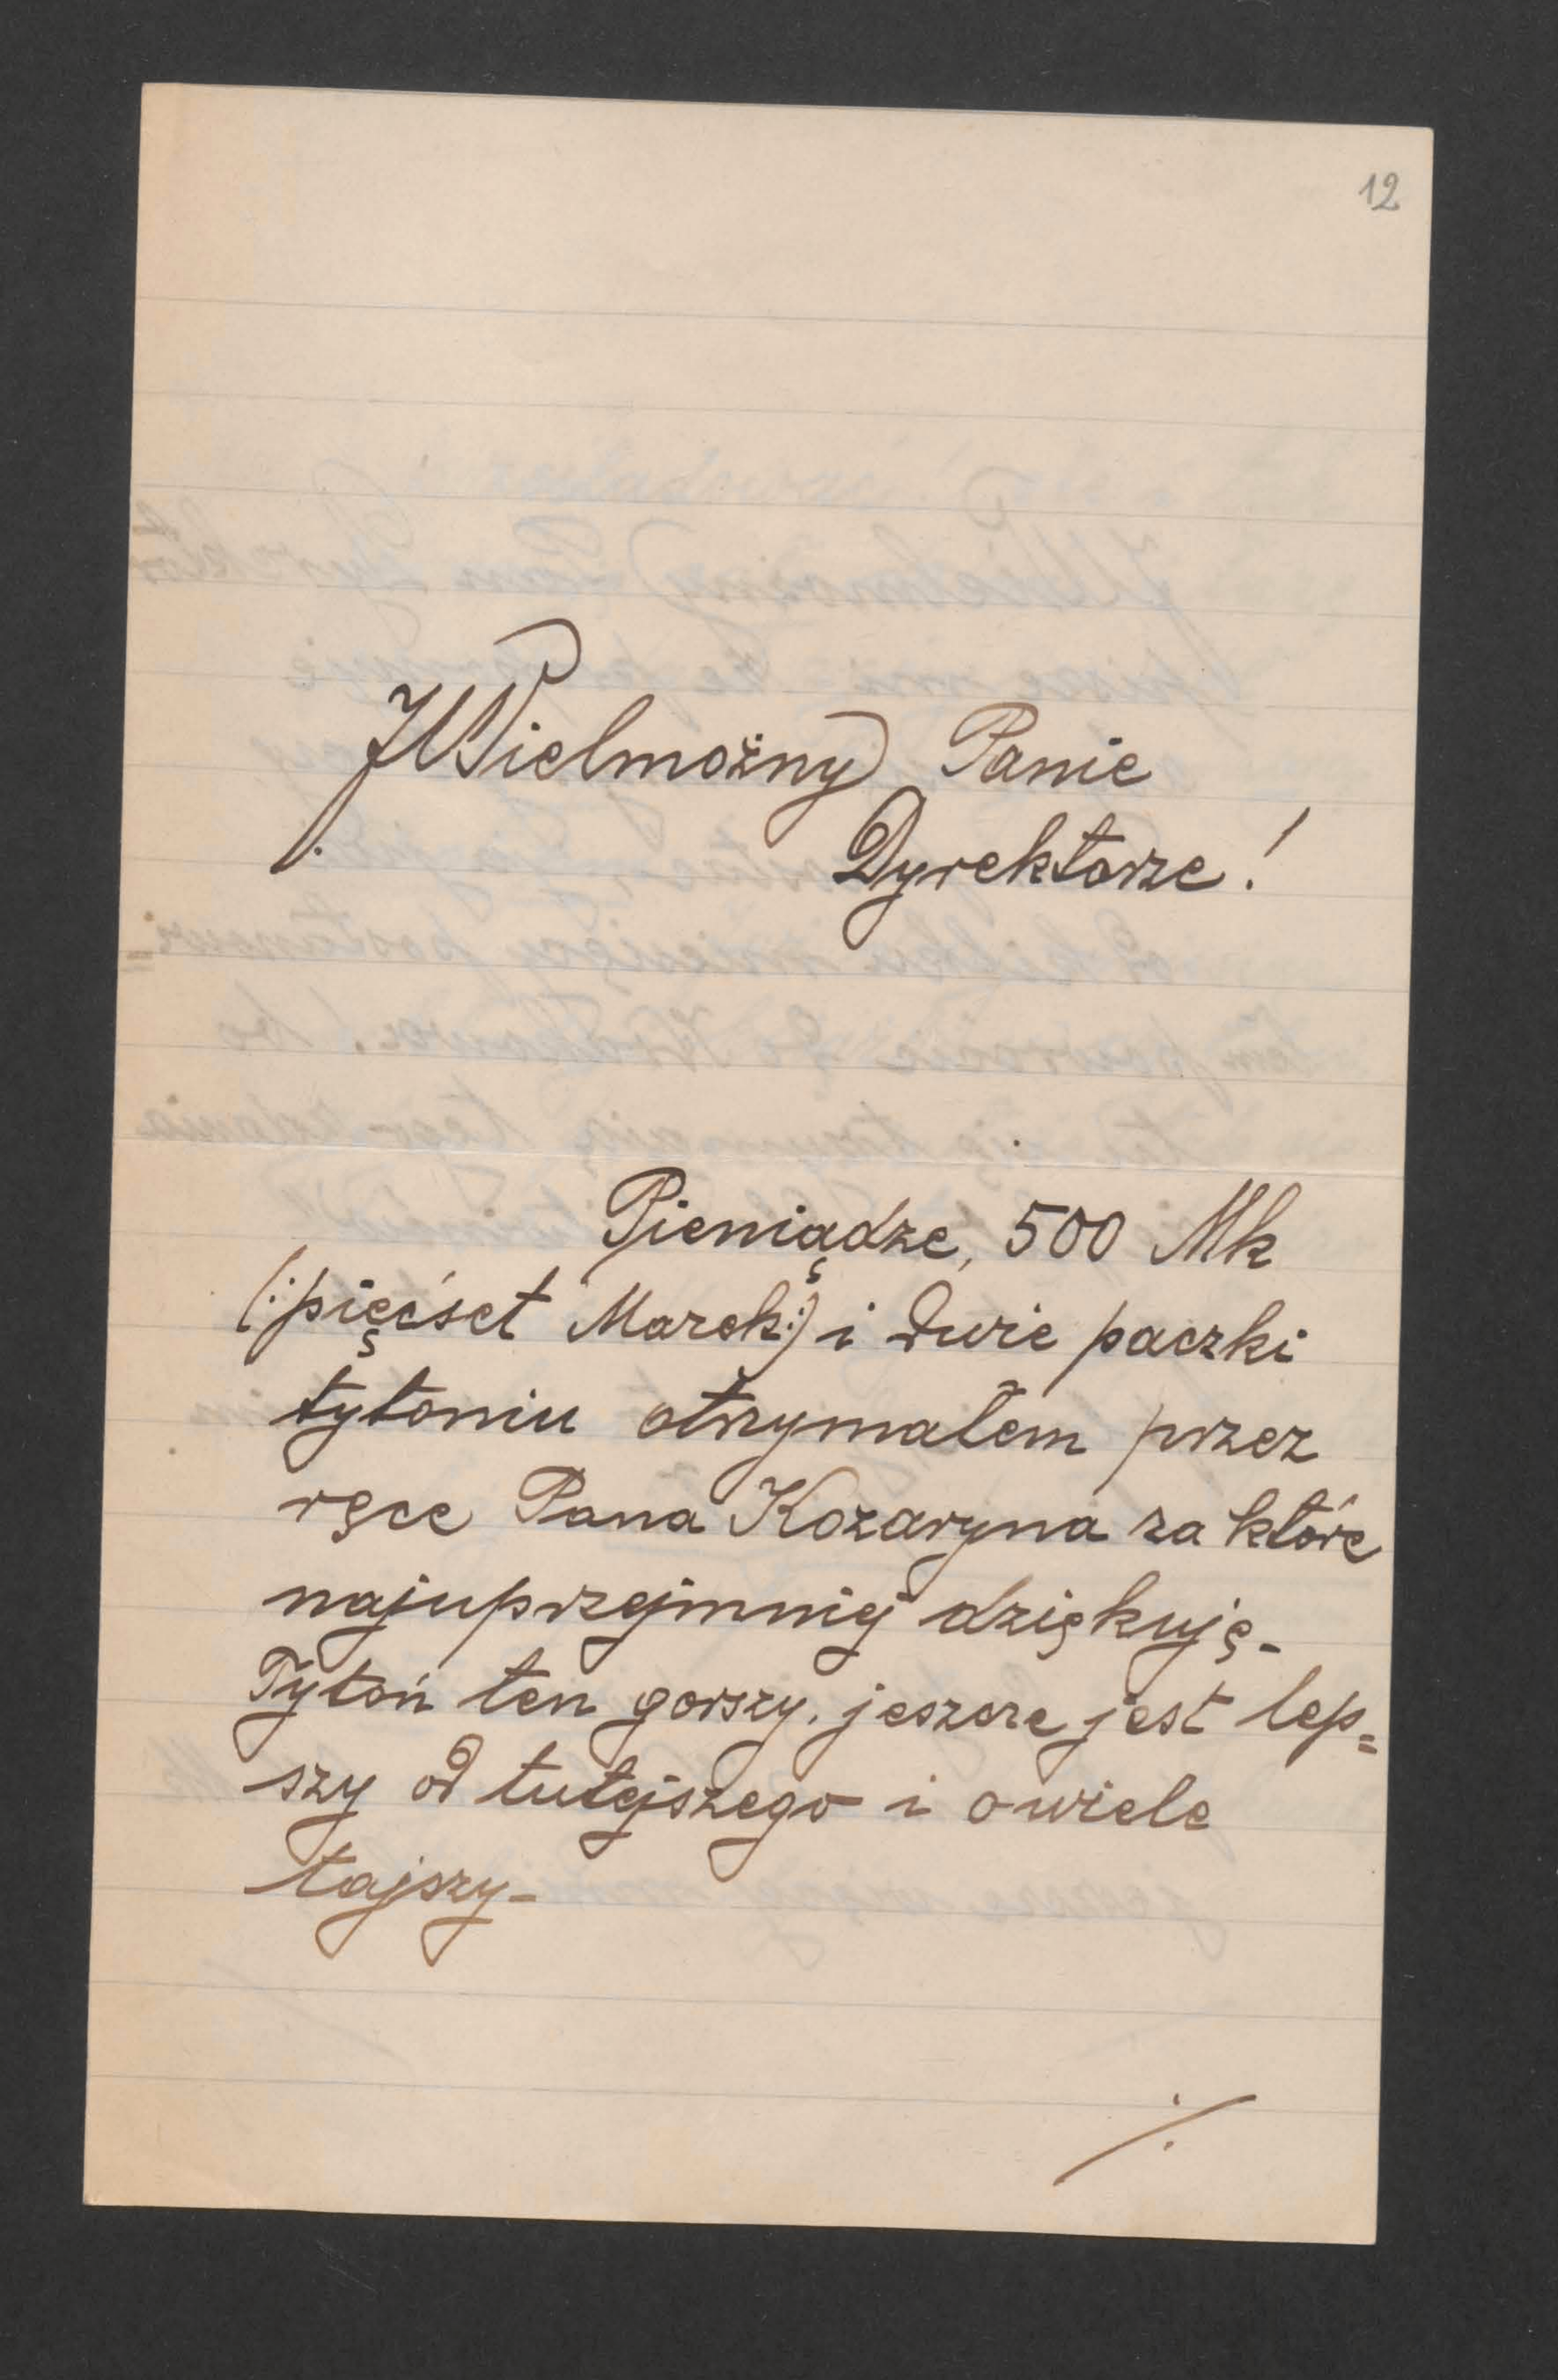 12
JWielmożny Panie
Dyrektorze!
Pieniądze, 500 Mk
(:pięćset Marek:) i dwie paczki
tytoniu otrzymałem przez
ręce Pana Kozaryna za które
najuprzejmniej dziękuję-
Tytoń ten gorszy, jeszcze jest lep=
szy od tutejszego i o wiele
tajszy-
./.